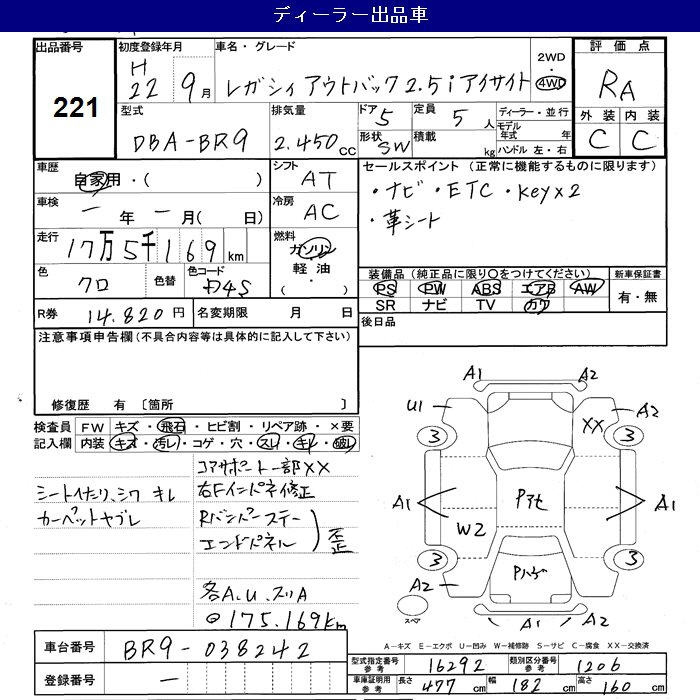 ディーラー出品車
出品番号
221
初度登録年月
H
22 9月
車名・グレード
レガシィアウトバック2.5iアイサイト
2WD
・
4WD
評価点
RA
外装 内装
C C
型式
DBA-BR9
排気量
2.450cc
ドア 5
形状 SW
定員 5人
積載 kg
ディーラー・並行
モデル年式 年
ハンドル 左・右
車歴
自家用・( )
シフト AT
車検
ー年ー月( 日)
冷房 AC
走行
17万5千169km
燃料
ガソリン
軽油
( ・ )
色
クロ
色替
色コード
D4S
R券 14.820円
名変期限 月 日
セールスポイント(正常に機能するものに限ります)
・ナビ・ETC・keyx2
・革シート
装備品(純正品に限り○をつけてください)
PS PW ABS エアB AW
SR ナビ TV カワ
新車保証書
有・無
後日品
注意事項申告欄(不具合内容等は具体的に記入して下さい)
修復歴 有 〔箇所 〕
検査員 FW キズ・飛石・ヒビ割・リペア跡・×要
記入欄 内装 キズ・汚レ・コゲ・穴・スレ・キレ・破レ
シートイたリ、シワ キレ
カーペットヤブレ
コアサポート一部XX
右Fインパネ修正
Rバンパーステー
エンドパネル
歪
各A.U.スリA
@175.169km
A1 A2
U1 XX A2
3 3
A1 Pアセ A1
W2
3 3
A2 Pハゲ A2
A1 A1
スペア
A-キズ E-エクボ U-凹み W-補修跡 S-サビ C-腐食 XX-交換済
車台番号 BR9-038242
登録番号 ー
型式指定番号 参考 16292
類別区分番号 参考 1206
車庫証明用 参考 長さ 477cm 幅 182cm 高さ 160cm